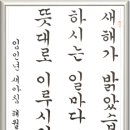 새해가 밝았습
하시는 일마다
뜻대로 이루시
임인년 새아침